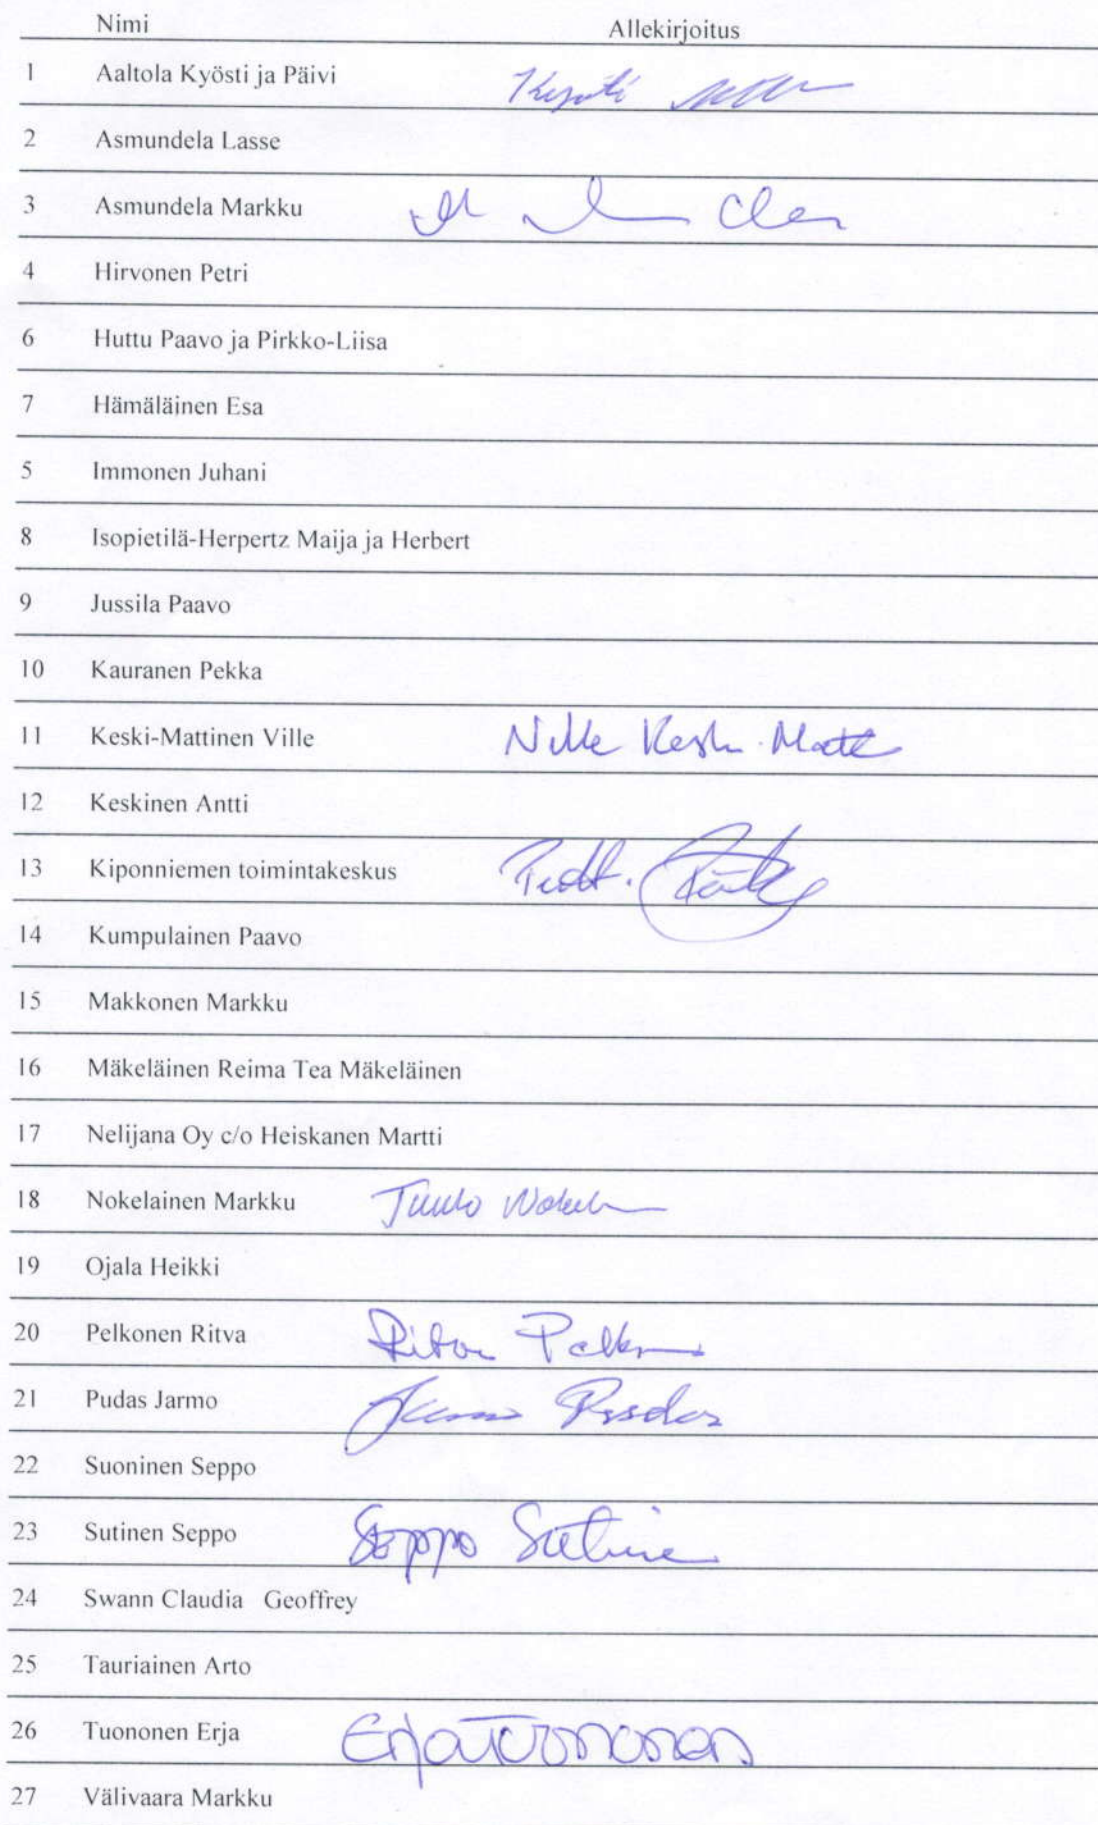 Nimi Allekirjoitus
1 Aaltola Kyösti ja Päivi Kyösti
2 Asmundela Lasse
3 Asmundela Markku
4 Hirvonen Petri
6 Huttu Paavo ja Pirkko-Liisa
7 Hämäläinen Esa
5 Immonen Juhani
8 Isopietilä-Herpertz Maija ja Herbert
9 Jussila Paavo
10 Kauranen Pekka
11 Keski-Mattinen Ville Ville Keski-Matt
12 Keskinen Antti
13 Kiponniemen toimintakeskus
14 Kumpulainen Paavo
15 Makkonen Markku
16 Mäkeläinen Reima Tea Mäkeläinen
17 Nelijana Oy c/o Heiskanen Martti
18 Nokelainen Markku
19 Ojala Heikki
20 Pelkonen Ritva Ritva Pelkonen
21 Pudas Jarmo Jarmo Pudas
22 Suoninen Seppo
23 Sutinen Seppo Seppo Sutinen
24 Swann Claudia Geoffrey
25 Tauriainen Arto
26 Tuononen Erja Erja Tuononen
27 Välivaara Markku